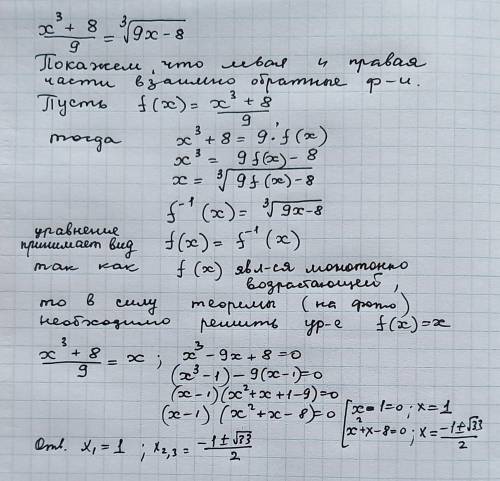 (x³ + 8)/9 = ∛(9x − 8)
Покажем, что левая и правая
части взаимно обратные ф-и.
Пусть f(x) = (x³ + 8)/9,
тогда x³ + 8 = 9·f(x)
x³ = 9f(x) − 8
x = ∛(9f(x) − 8)
f⁻¹(x) = ∛(9x − 8)
уравнение
принимает вид f(x) = f⁻¹(x)
так как f(x) явл-ся монотонно
возрастающей,
то в силу теоремы (на фото)
необходимо решить ур-е f(x) = x
(x³ + 8)/9 = x ; x³ − 9x + 8 = 0
(x³ − 1) − 9(x − 1) = 0
(x − 1)(x² + x + 1 − 9) = 0
(x − 1)(x² + x − 8) = 0
[x − 1 = 0 ; x = 1
x² + x − 8 = 0 ; x = (−1 ± √33)/2
Отв. x₁ = 1 ; x₂,₃ = (−1 ± √33)/2